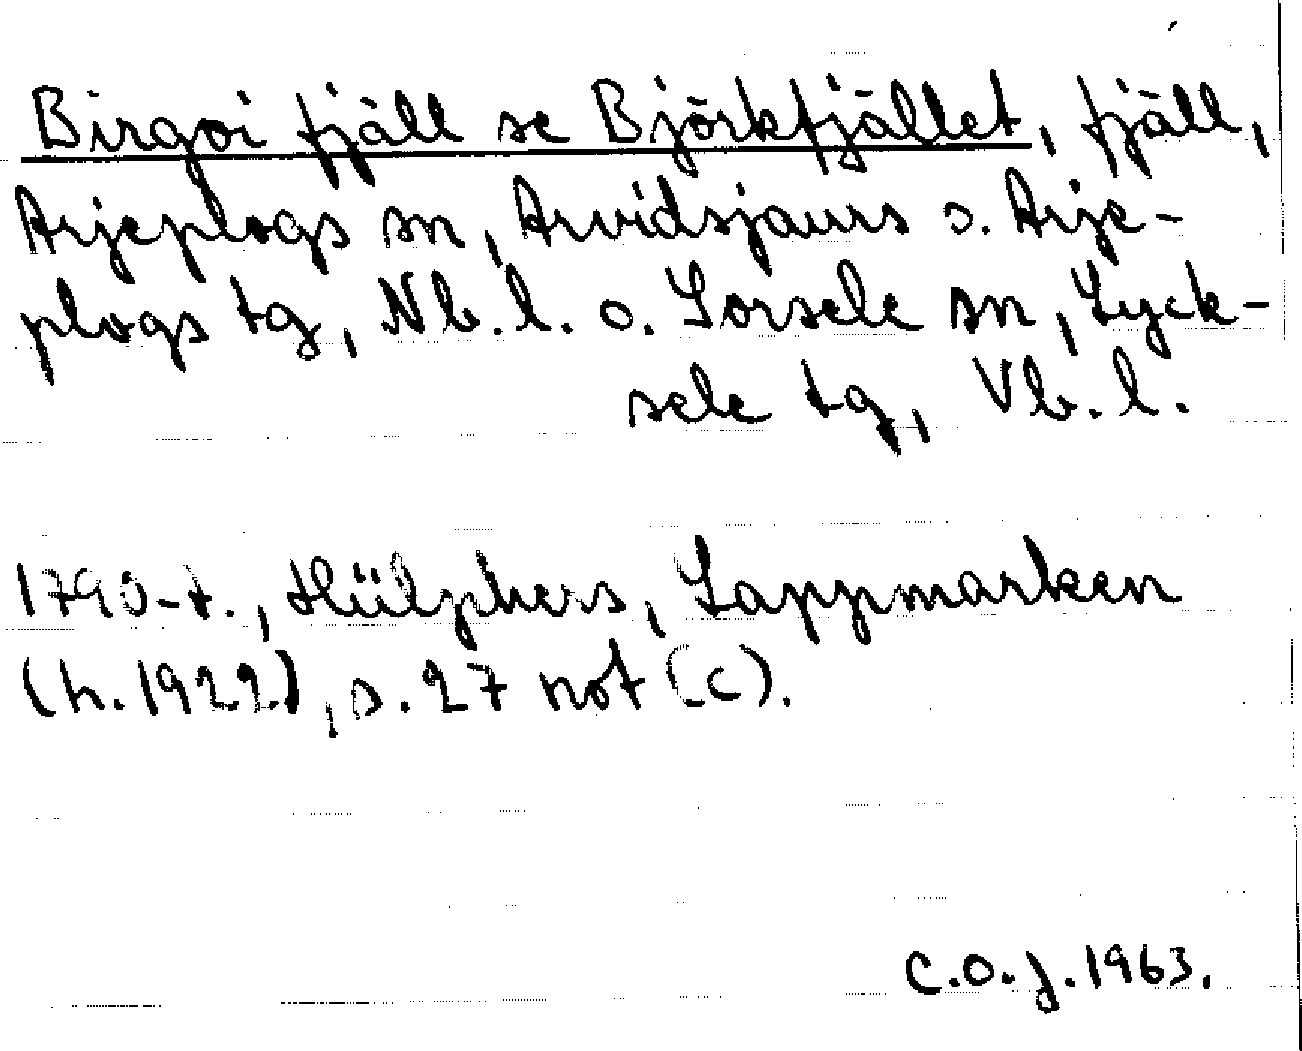 Birgoi fjäll se Björkfjället, fjäll,
Arjeplogs sn, Arvidsjaurs o. Arje-
plogs tg, Nb. l. o. Sorsele sn, Lyck-
sele tg, Vb. l.
1790-t., Hülphers, Lappmarken
(h. 1922), s. 27 not (c).
C.O.J. 1963.